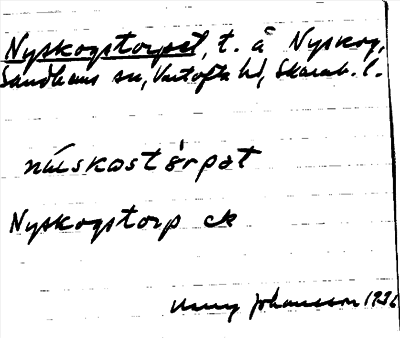 Nyskogstorpet, t. å Nyskog,
Sandhems sn, Vartofta hd, Skarab. l.
núskostòrpat
Nyskogstorp ck
Johansson 1936